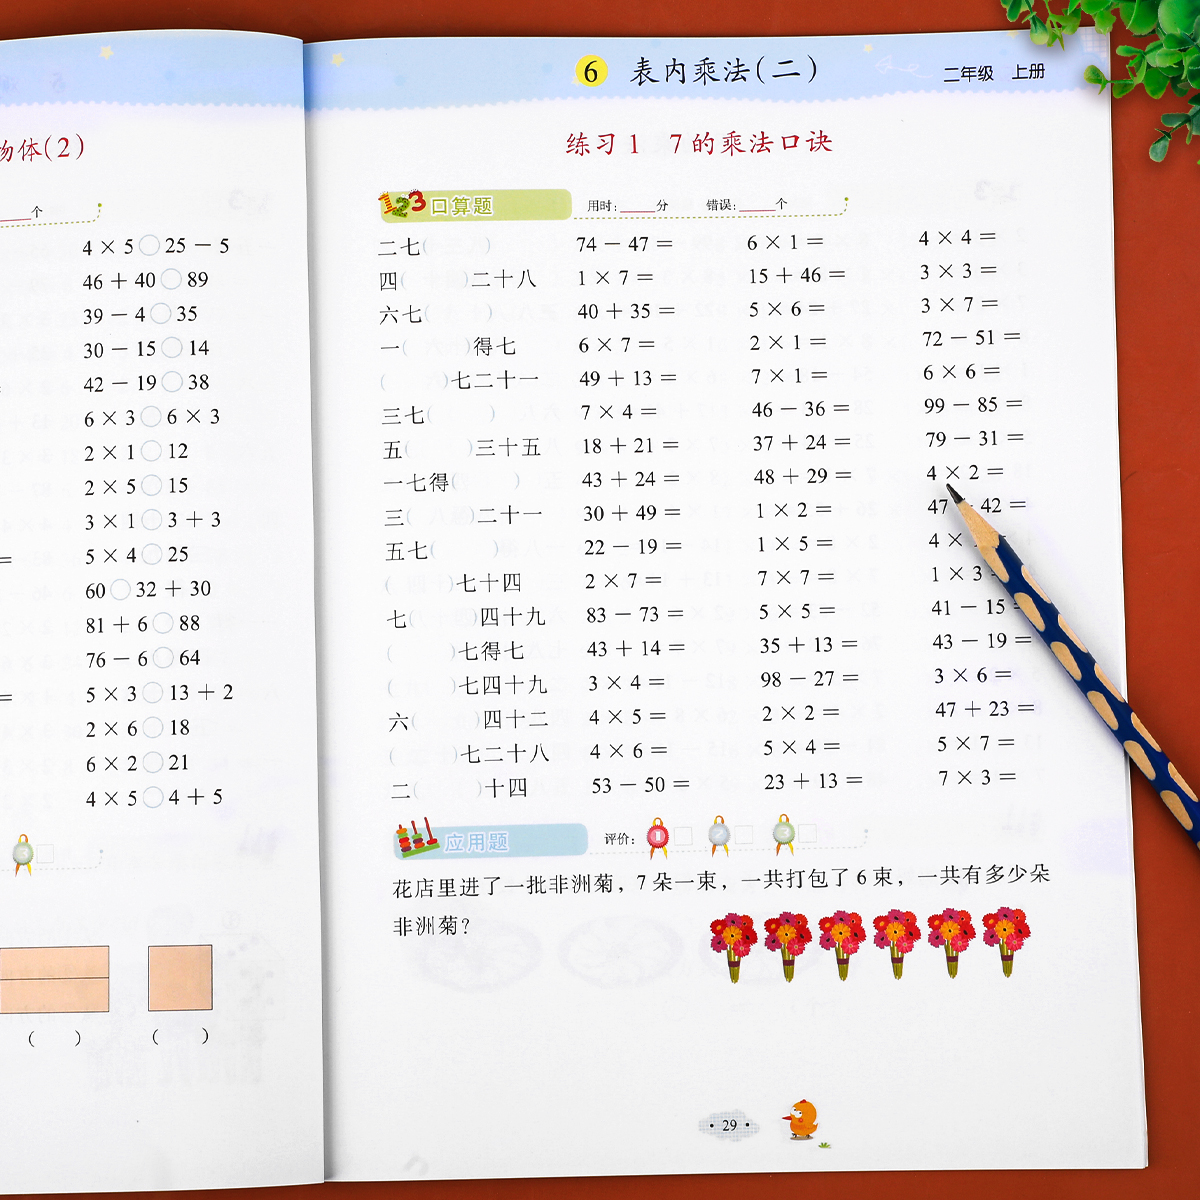 物体(2)
个
4 × 5○25 − 5
46 + 40○89
39 − 4○35
30 − 15○14
42 − 19○38
6 × 3○6 × 3
2 × 1○12
2 × 5○15
3 × 1○3 + 3
= 5 × 4○25
60○32 + 30
81 + 6○88
76 − 6○64
= 5 × 3○13 + 2
2 × 6○18
6 × 2○21
4 × 5○4 + 5
3
( ) ( )
6 表内乘法(二) 二年级 上册
练习 1 7 的乘法口诀
123 口算题 用时:____分 错误:____个
二七( ) 74 − 47 = 6 × 1 = 4 × 4 =
四( )二十八 1 × 7 = 15 + 46 = 3 × 3 =
六七( ) 40 + 35 = 5 × 6 = 3 × 7 =
一( )得七 6 × 7 = 2 × 1 = 72 − 51 =
( )七二十一 49 + 13 = 7 × 1 = 6 × 6 =
三七( ) 7 × 4 = 46 − 36 = 99 − 85 =
五( )三十五 18 + 21 = 37 + 24 = 79 − 31 =
一七得( ) 43 + 24 = 48 + 29 = 4 × 2 =
三( )二十一 30 + 49 = 1 × 2 = 47 − 42 =
五七( ) 22 − 19 = 1 × 5 = 4 ×
( )七十四 2 × 7 = 7 × 7 = 1 × 3 =
七( )四十九 83 − 73 = 5 × 5 = 41 − 15 =
( )七得七 43 + 14 = 35 + 13 = 43 − 19 =
( )七四十九 3 × 4 = 98 − 27 = 3 × 6 =
六( )四十二 4 × 5 = 2 × 2 = 47 + 23 =
( )七二十八 4 × 6 = 5 × 4 = 5 × 7 =
二( )十四 53 − 50 = 23 + 13 = 7 × 3 =
应用题 评价: 1 2 3
花店里进了一批非洲菊，7 朵一束，一共打包了 6 束，一共有多少朵
非洲菊?
· 29 ·